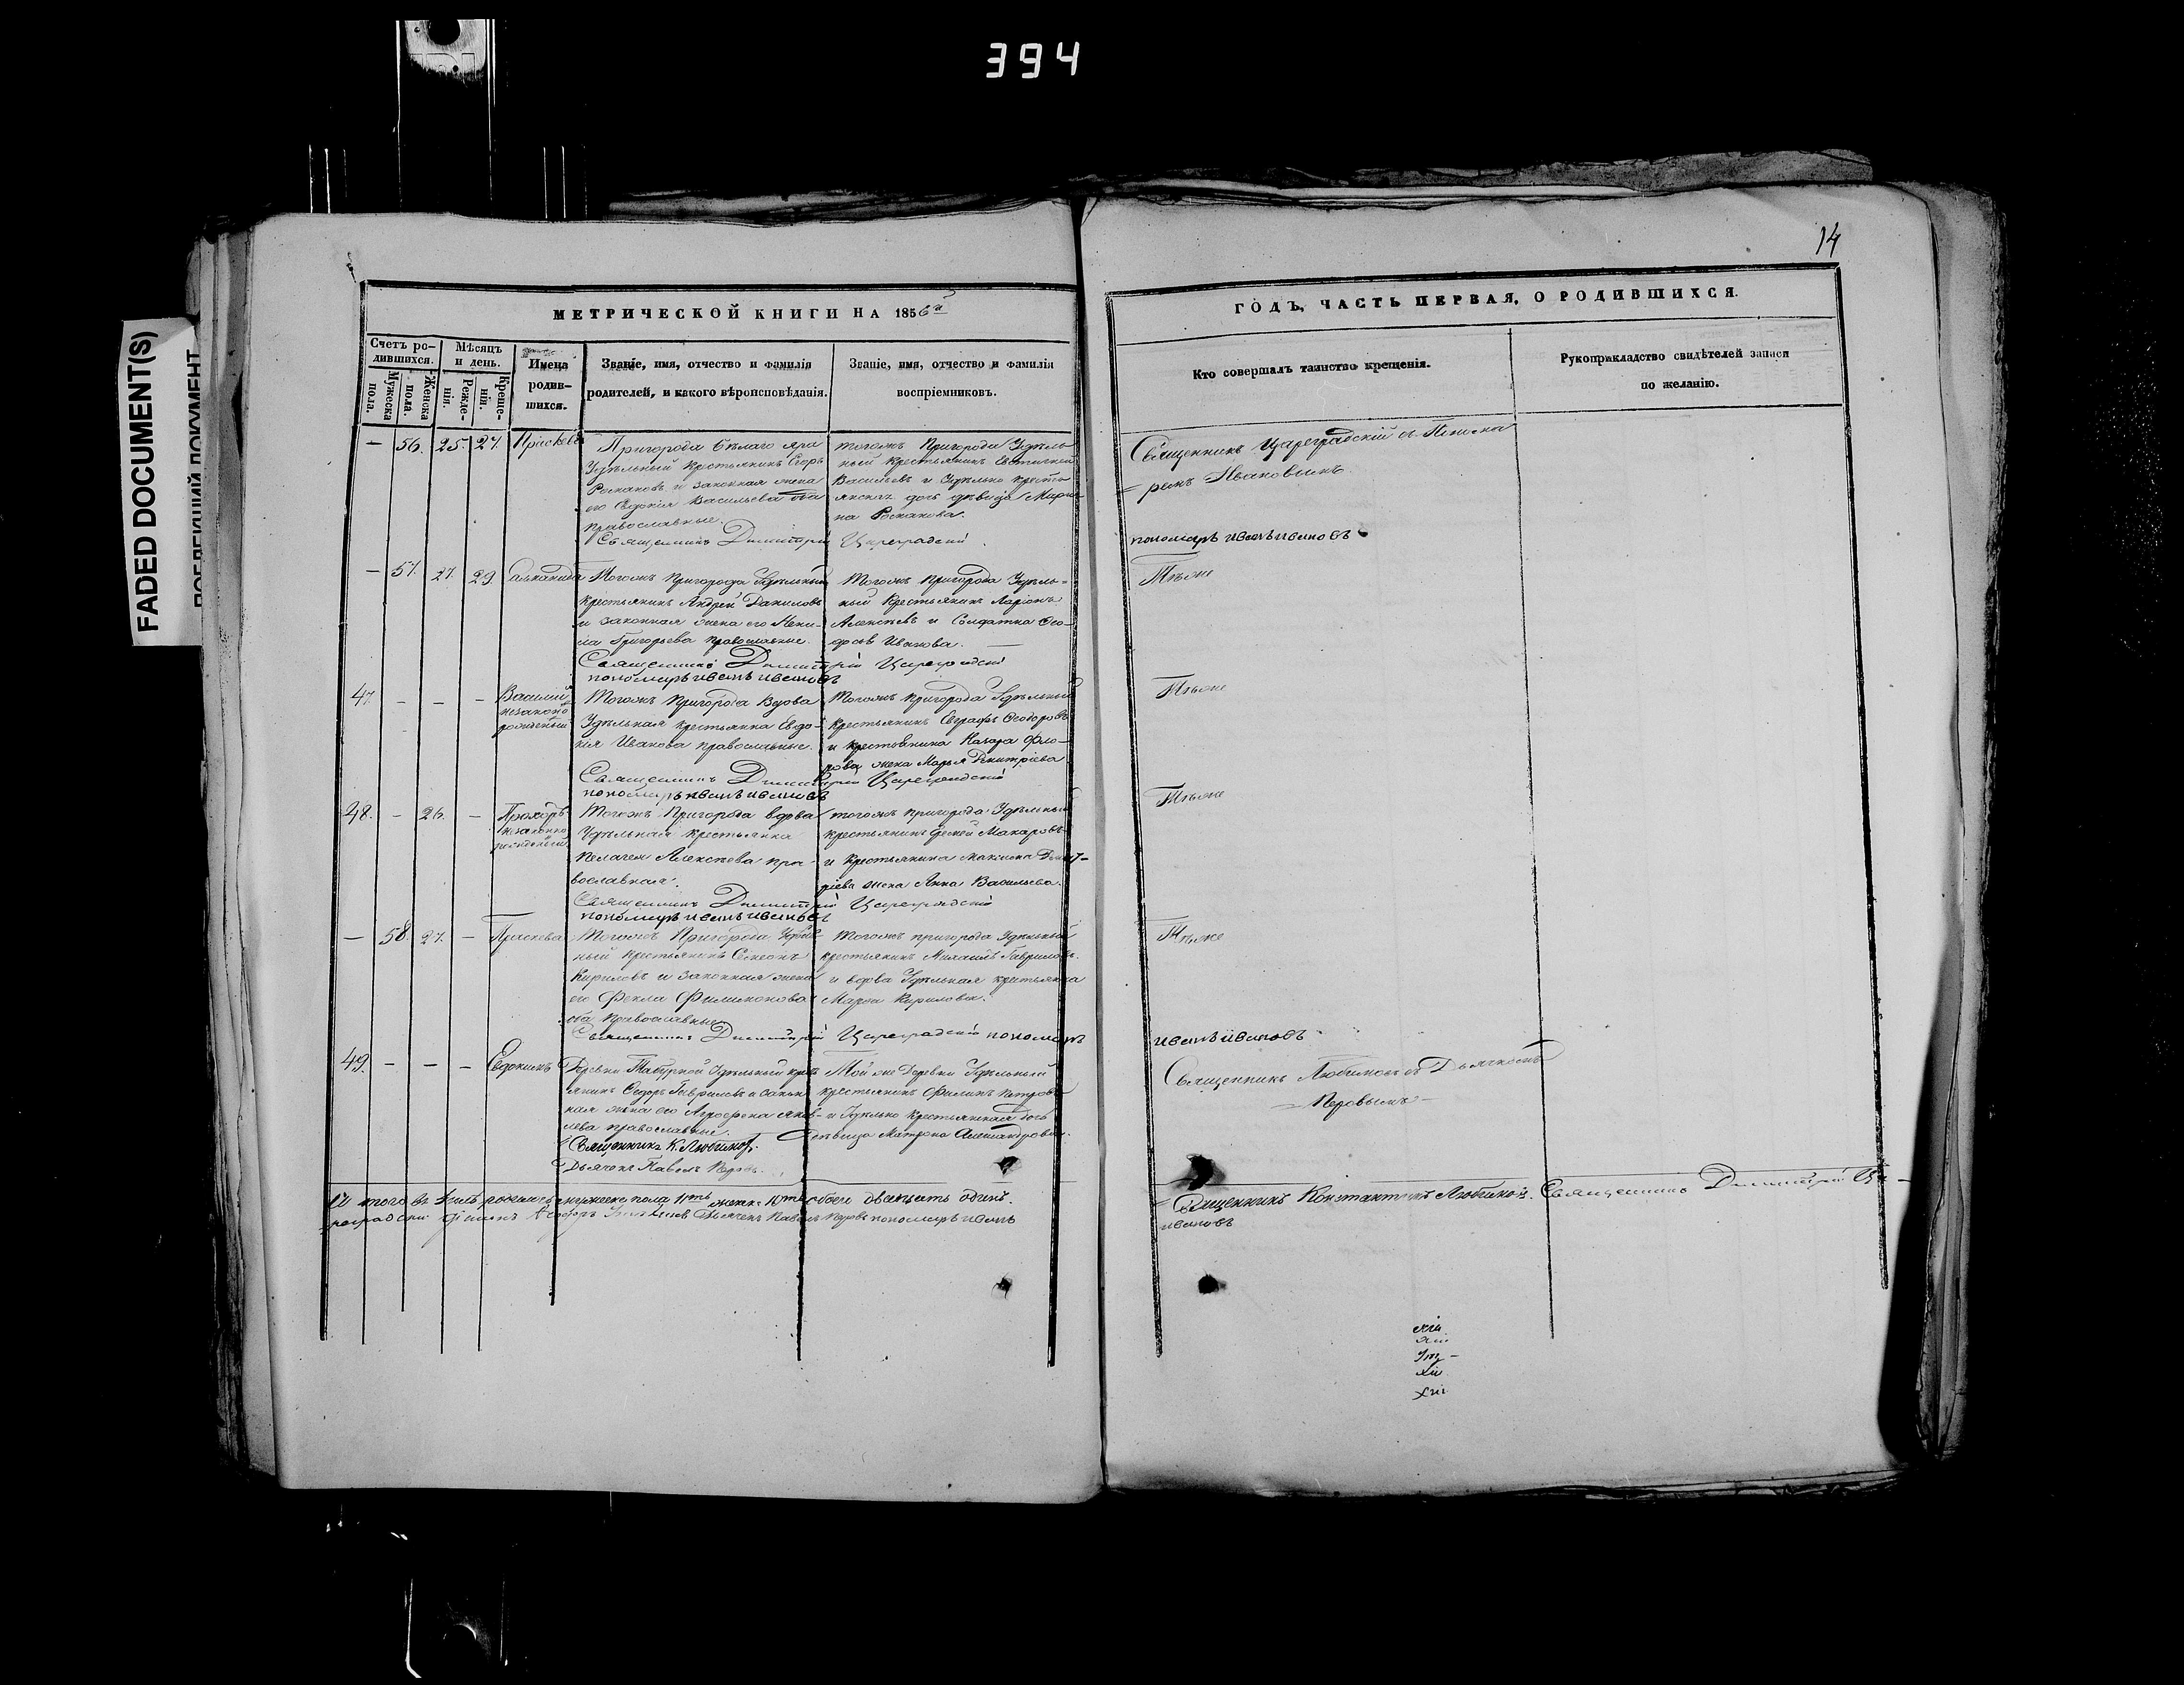 394
FADED DOCUMENT(S)
14
МЕТРИЧЕСКОЙ КНИГИ НА 1856й
ГОДЪ, ЧАСТЬ ПЕРВАЯ, О РОДИВШИХСЯ.
Счетъ ро-
дившихся.
Мужеска
пола.
Женска
пола.
Мѣсяцъ
и день.
Рожде-
нія.
Креще-
нія.
Имена
родив-
шихся.
Званіе, имя, отчество и фамилія
родителей, и какого вѣроисповѣданія.
Званіе, имя, отчество и фамилія
воспріемниковъ.
Кто совершалъ таинство крещенія.
Рукоприкладство свидѣтелей записи
по желанію.
— 56. 25. 27. Праскева
Пригорода Бѣлаго Яра
Удѣльный крестьянинъ Егоръ
Романовъ и законная жена
его Евдокія Васильева оба
православные.
Священникъ Димитрій Цареградскій
тогожъ Пригорода Удѣль-
ный крестьянинъ
Васильевъ и Удѣльно кресть
янская дочь дѣвица Мари-
на Романова.
Священникъ Цареградскій съ Понома
= ремъ Ивановымъ.
пономарь иванъ ивановъ
— 57. 27. 29.
Тогожъ пригорода Удѣльный
крестьянинъ Андрей Даниловъ
и законная жена его Ксені-
ія Григорьева православные.
Священникъ Димитрій Цареградскій
пономарь иванъ ивановъ
Тогожъ пригорода Удѣль-
ный Крестьянинъ Ларіонъ
Алексѣевъ и Солдатка Ѳео-
досья Иванова.
Тѣже
47 — — — Василий
незаконо
рожденый
Тогожъ Пригорода Вдова
Удѣльная крестьянка Евдо-
кія Иванова православные.
Священникъ Димитрій Цареградскій
пономарь иванъ ивановъ
Тогожъ пригорода Удѣльный
крестьянинъ Евграфъ Ѳеодоровъ
и крестьянина Назара Фло-
рова жена Марья Дмитріева
Тѣже
48. — 26. — Прохоръ
незаконно
рожденый
Тогожъ Пригорода вдова
Удѣльная крестьянка
Пелагея Алексѣева пра-
вославная.
Священникъ Димитрій Цареградскій
пономарь иванъ ивановъ
тогожъ пригорода Удѣльный
крестьянинъ Макаровъ
и крестьянина Максима Дмит-
ріева жена Анна Васильева.
Тѣже
— 58. 27. — Праскева
Тогожъ Пригорода Удѣль
ный крестьянинъ Симеонъ
Кириловъ и законная жена
его Фекла Филимонова
оба православные
Священникъ Димитрій Цареградскій пономарь
иванъ ивановъ
Тогожъ пригорода Удѣльный
крестьянинъ Михаилъ Гавриловъ.
и вдова Удѣльная крестьянка
Марѳа Кирилова.
Тѣже
49. — — — Евдокимъ
Деревни Удѣльный крест
янинъ Ѳедоръ Гавриловъ и закон
ная жена его Агрофена Яков-
лева православные.
Священникъ К. Любимовъ.
Дьячекъ Павелъ Перовъ.
Той же Деревни Удѣльный
крестьянинъ Филипъ Петровъ
и Удѣльно крестьянская дочь
дѣвица Матрена Александрова.
Священникъ Любимовъ съ Дьячкомъ
— Перовымъ —
И того въ родилось мужеска пола 11ть женска 10ть обоего двадцать одинъ.
Священникъ Константинъ Любимовъ. Священникъ Димитрій Ца-
реградскій Дьячекъ Павелъ Перовъ пономарь иванъ
ивановъ